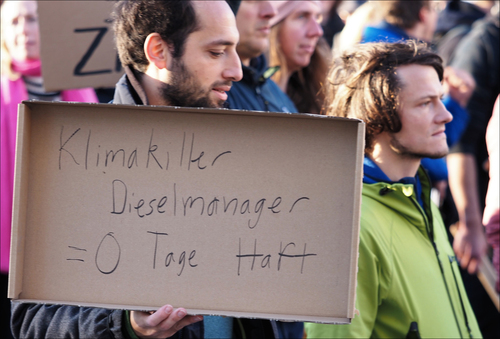 Z
Klimakiller
Dieselmanager
= 0 Tage Haft